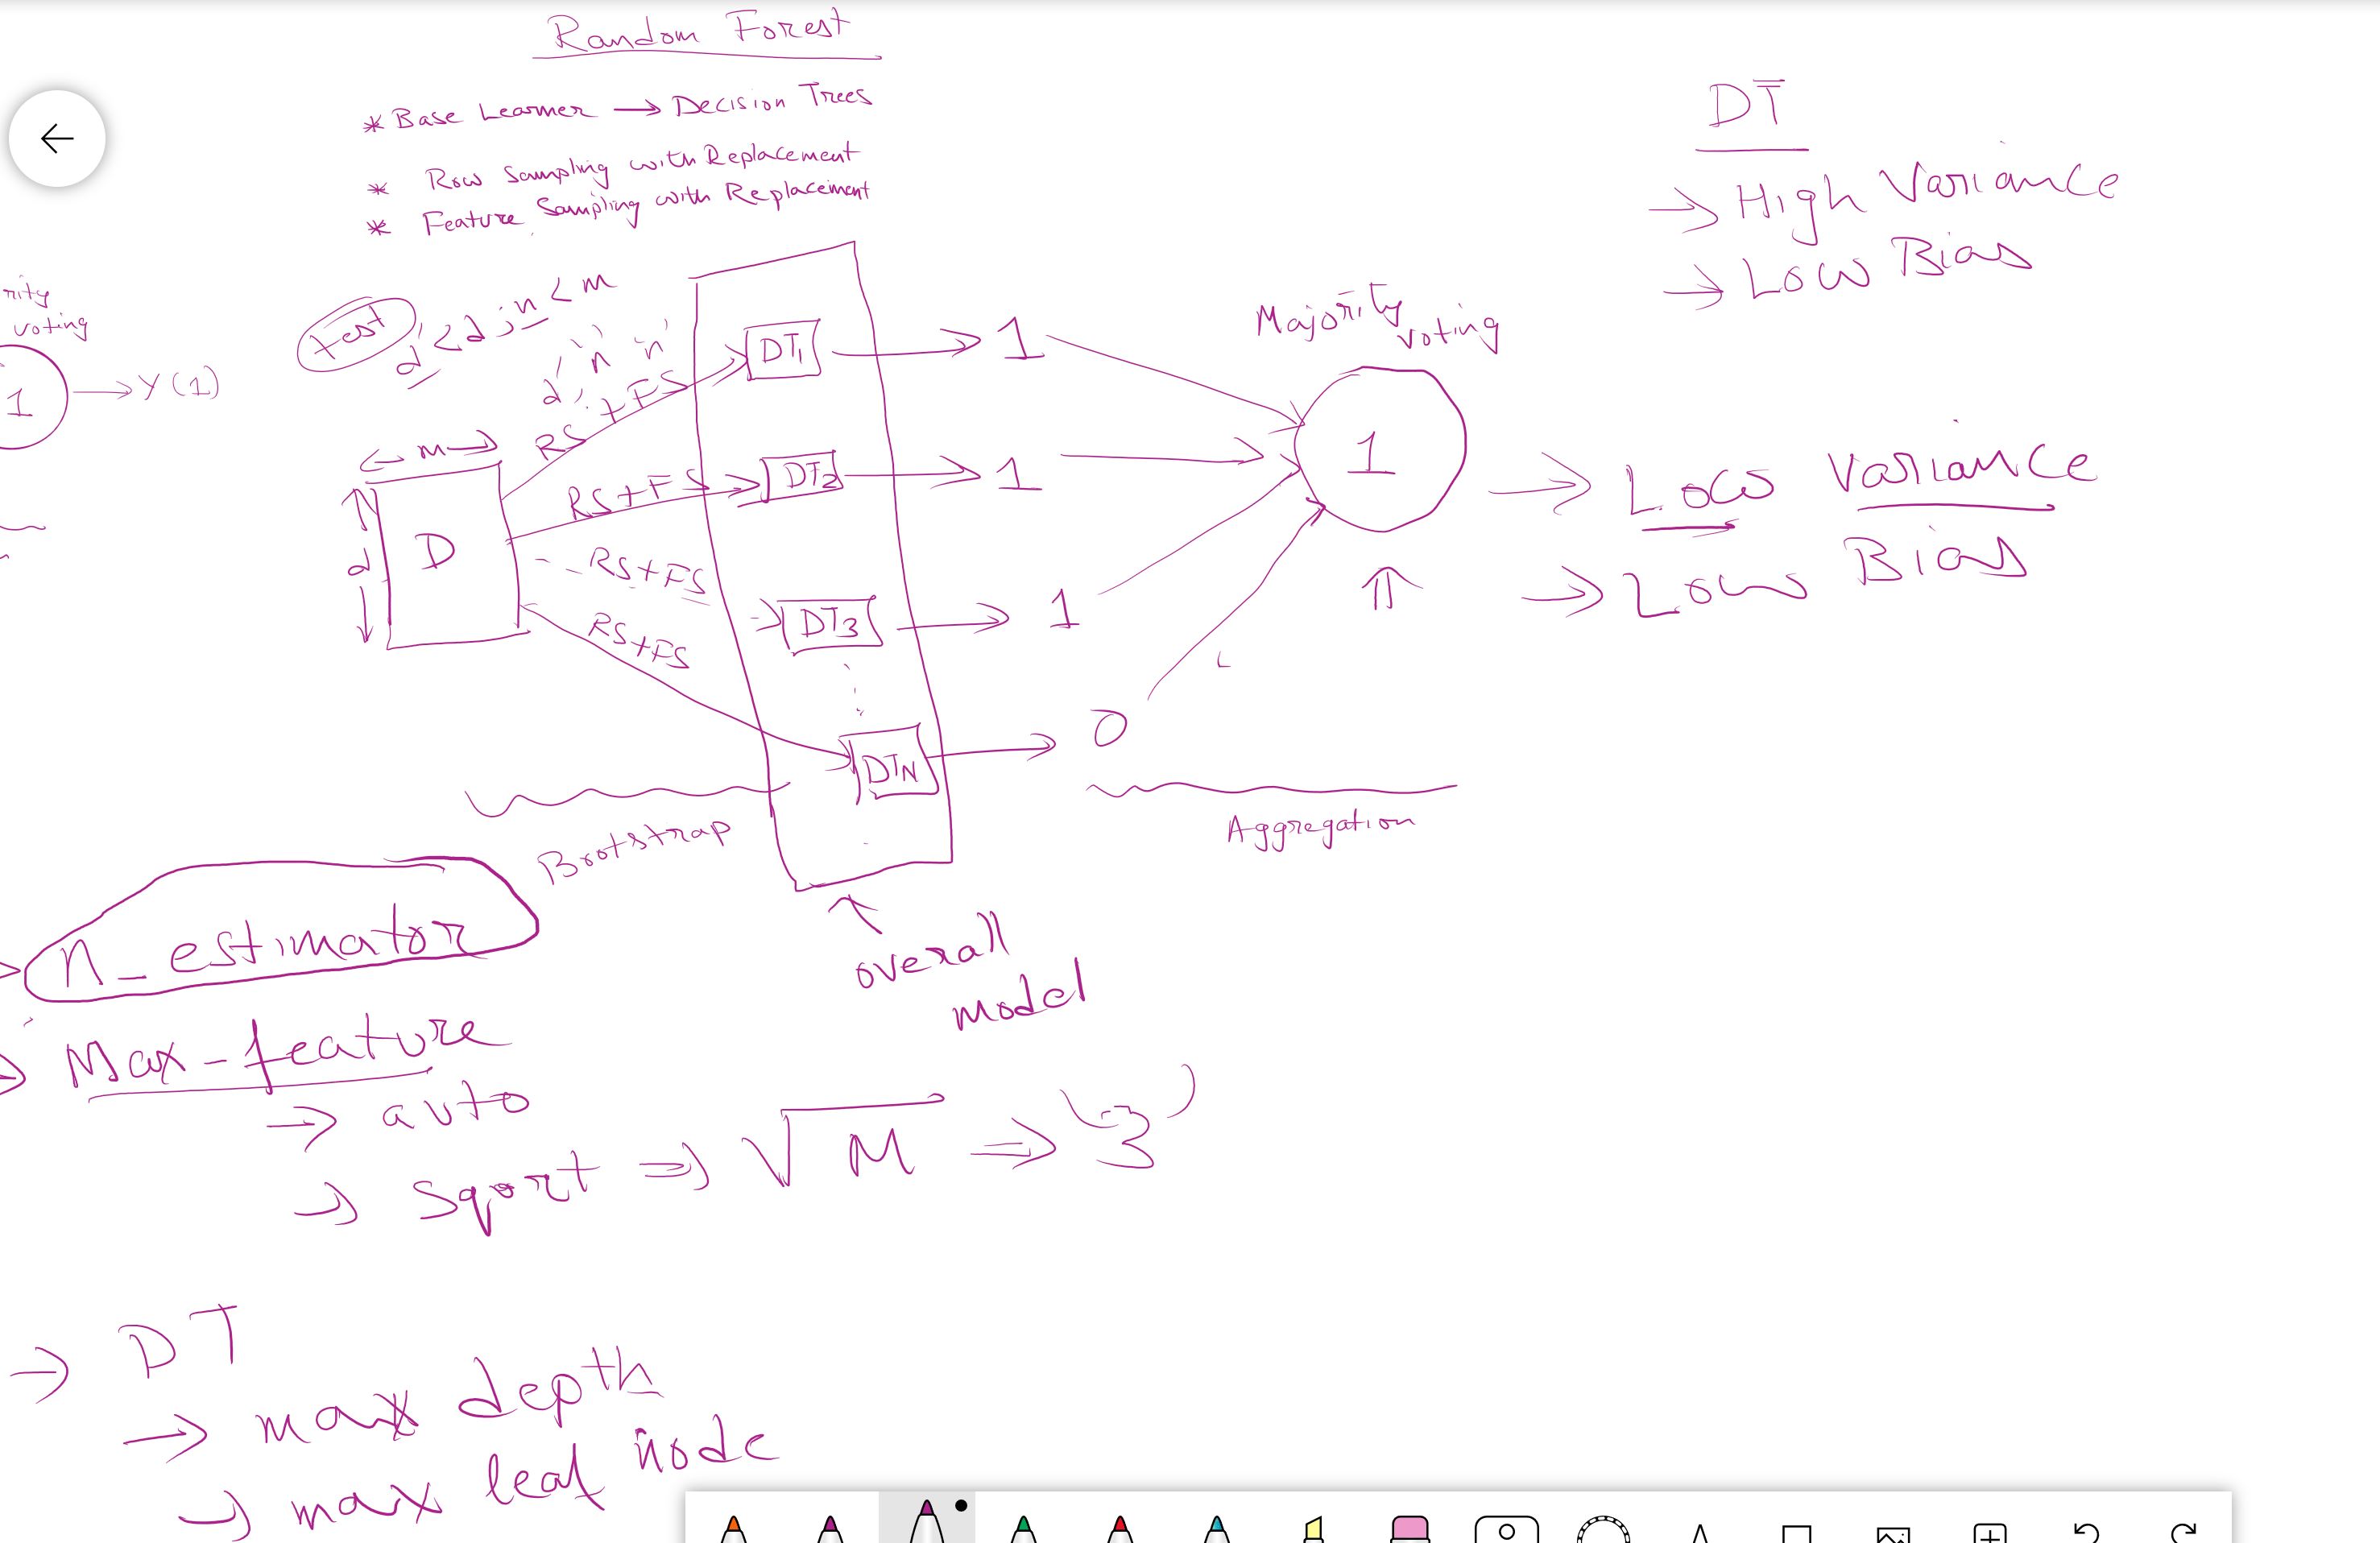 Random Forest
* Base Learner → Decision Trees
* Row Sampling with Replacement
* Feature Sampling with Replacement
DT
→ High Variance
→ Low Bias
rity
voting
1 → Y (1)
test
d' < d ; n < m
d', n n'
← m →
d
D
RS + FS
RS+FS
RS+FS
RS+FS
DT1 → 1
DT2 → 1
DT3 → 1
DTN → 0
Majority
voting
1
→ Low Variance
→ Low Bias
Bootstrap
Aggregation
overall
model
n_estimator
Max-feature
→ auto
→ Sqort ⇒ √M ⇒ 3
→ DT
→ max depth
→ max leaf node